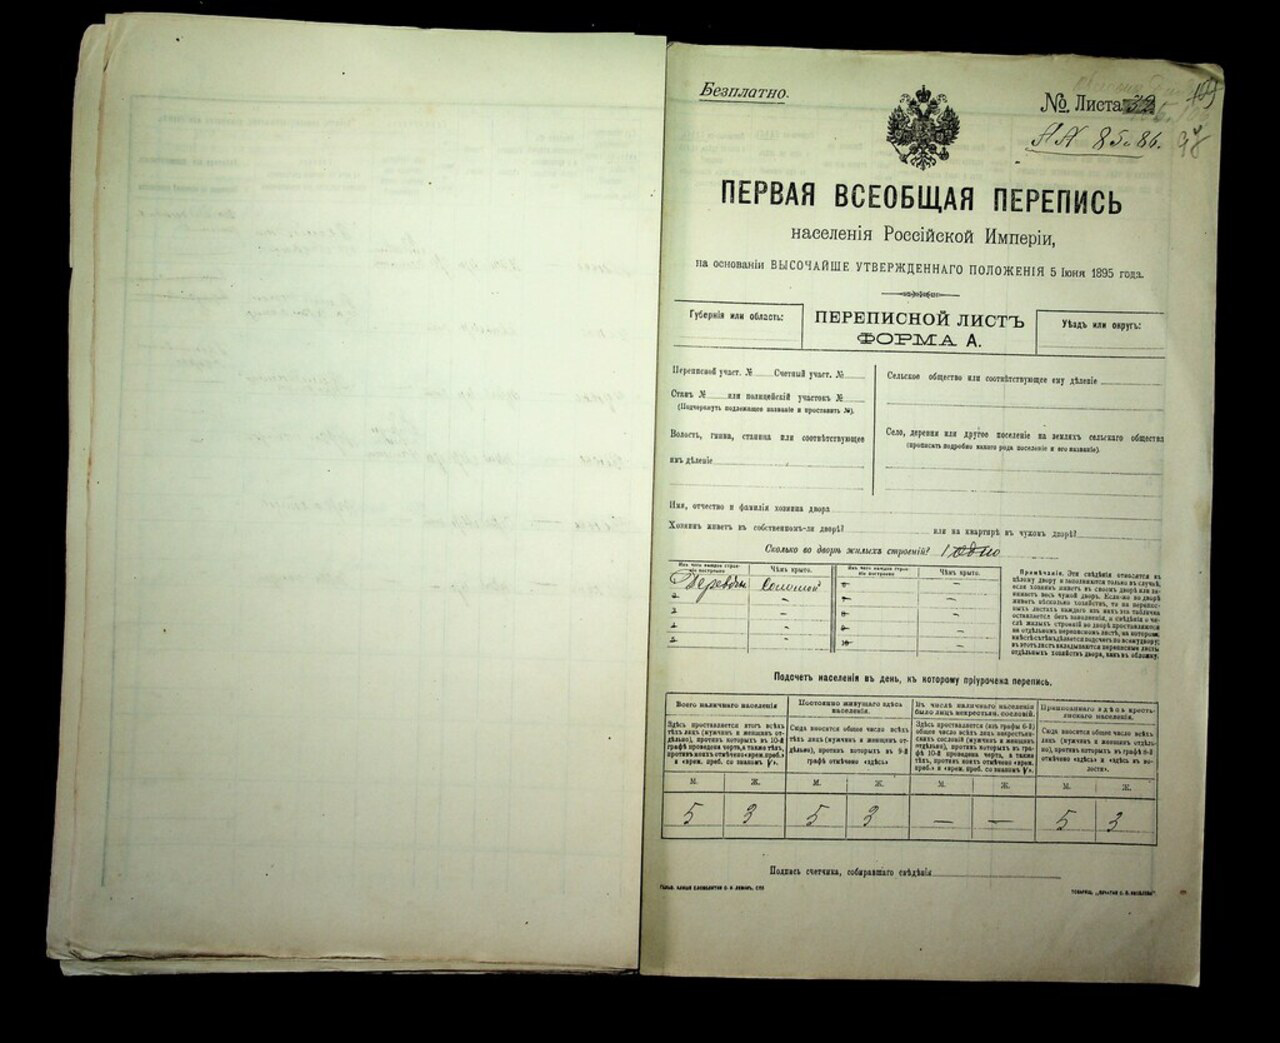 Безплатно.
№ Листа 32
NN 85 и 86.
ПЕРВАЯ ВСЕОБЩАЯ ПЕРЕПИСЬ
населенія Россійской Имперіи,
на основаніи ВЫСОЧАЙШЕ УТВЕРЖДЕННАГО ПОЛОЖЕНІЯ 5 Іюня 1895 года.
Губернія или область:
ПЕРЕПИСНОЙ ЛИСТЪ
ФОРМА А.
Уѣздъ или округъ:
Переписной участ. № Счетный участ. №
Станъ № или полицейскій участокъ №
(Подчеркнуть подлежащее названіе и проставить №).
Волость, гмина, станица или соотвѣтствующее
имъ дѣленіе
Сельское общество или соотвѣтствующее ему дѣленіе
Село, деревня или другое поселеніе на земляхъ сельскаго общества
(прописать подробно какого рода поселеніе и его названіе).
Имя, отчество и фамилія хозяина двора
Хозяинъ живетъ въ собственномъ-ли дворѣ? или на квартирѣ въ чужомъ дворѣ?
Сколько во дворѣ жилыхъ строеній? 1 одно
Изъ чего каждое строеніе построено
Чѣмъ крыто.
Изъ чего каждое строеніе построено
Чѣмъ крыто.
Деревян Соломой
Примѣчаніе. Эти свѣдѣнія относятся къ
цѣлому двору и заполняются только въ случаѣ,
если хозяинъ живетъ въ своемъ дворѣ или занимаетъ
весь чужой дворъ. Если-же во дворѣ
живетъ нѣсколько хозяйствъ, то на переписныхъ
листахъ каждаго изъ нихъ эта табличка
оставляется безъ заполненія, а свѣдѣнія о числѣ
жилыхъ строеній во дворѣ проставляются
на отдѣльномъ переписномъ листѣ, на которомъ
вмѣстѣ съ тѣмъ дѣлается подсчетъ по всему двору;
въ этотъ листъ вкладываются переписные листы
отдѣльныхъ хозяйствъ двора, какъ въ обложку.
Подсчетъ населенія въ день, къ которому пріурочена перепись.
Всего наличнаго населенія
Здѣсь проставляется итогъ всѣхъ
тѣхъ лицъ (мужчинъ и женщинъ отдѣльно),
противъ которыхъ въ 10-й
графѣ проведена черта, а также тѣхъ,
противъ коихъ отмѣчено «врем. преб.»
и «врем. преб. со знакомъ V».
Постоянно живущаго здѣсь
населенія.
Сюда вносится общее число всѣхъ
тѣхъ лицъ (мужчинъ и женщинъ отдѣльно),
противъ которыхъ въ 9-й
графѣ отмѣчено «здѣсь»
Въ числѣ наличнаго населенія
было лицъ некрестьян. сословій.
Здѣсь проставляется (изъ графы 6-й)
общее число всѣхъ лицъ некрестьянскихъ
сословій (мужчинъ и женщинъ
отдѣльно), противъ которыхъ въ графѣ
10-й проведена черта, а также
тѣхъ, противъ коихъ отмѣчено «врем.
преб.» и «врем. преб. со знакомъ V».
Приписаннаго здѣсь крестьянскаго
населенія.
Сюда вносится общее число всѣхъ
лицъ (мужчинъ и женщинъ отдѣльно),
противъ которыхъ въ графѣ 8-й
отмѣчено «здѣсь» и «здѣсь въ волости».
М. Ж. М. Ж. М. Ж. М. Ж.
5 3 5 3 — — 5 3
Подпись счетчика, собиравшаго свѣдѣнія